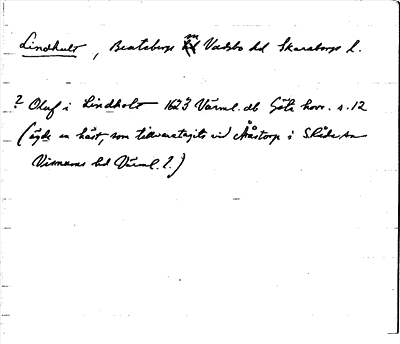 Lindhult, Beateberg sn Vadsbo hd Skaraborgs l.
? Oluf i Lindholt 1623 Värml. db Göta hovr. s. 12
(ägde en häst, som tillvaratagits vid Ååstorp i
Visnums hd Värml. l.)